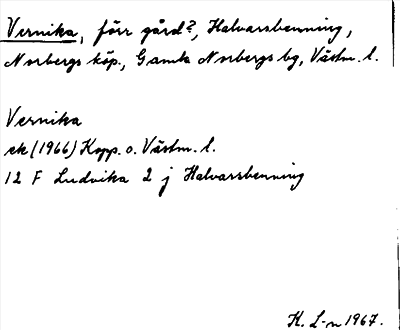 Vernika, förr gård?, Halvarsbenning,
Norbergs köp., Gamla Norbergs bg, Västm. l.
Vernika
ek (1966) Kopp. o. Västm. l.
12 F Ludvika 2 j Halvarsbenning
K. L-n 1967.